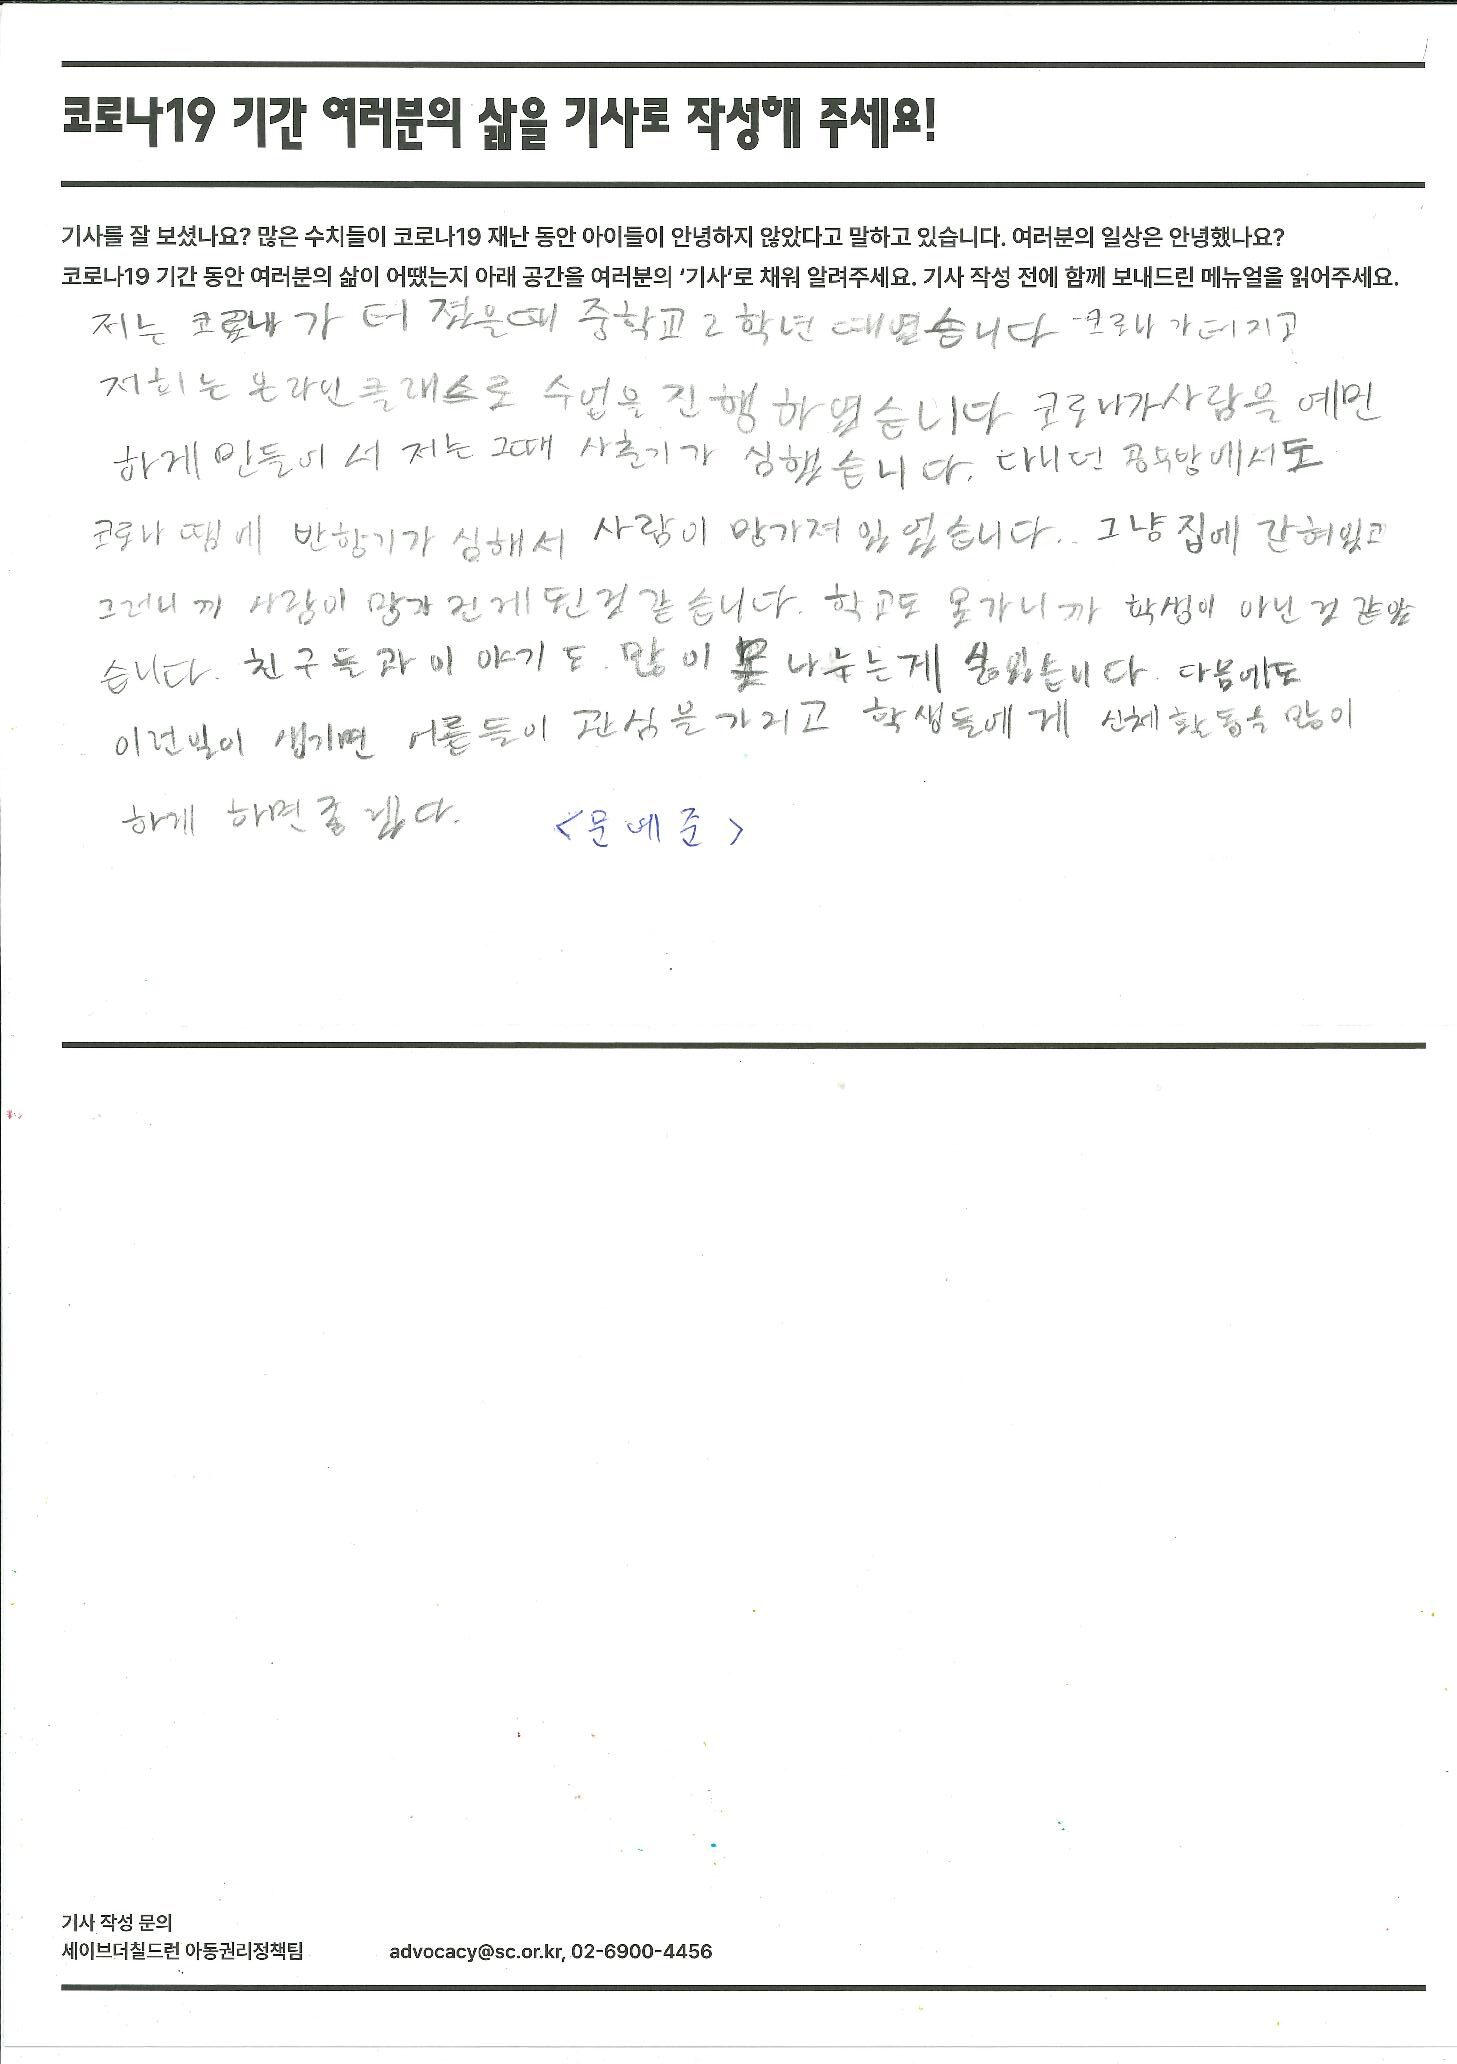 코로나19 기간 여러분의 삶을 기사로 작성해 주세요!
기사를 잘 보셨나요? 많은 수치들이 코로나19 재난 동안 아이들이 안녕하지 않았다고 말하고 있습니다. 여러분의 일상은 안녕했나요?
코로나19 기간 동안 여러분의 삶이 어땠는지 아래 공간을 여러분의 ‘기사’로 채워 알려주세요. 기사 작성 전에 함께 보내드린 메뉴얼을 읽어주세요.
저는 코로나가 터 졌을때 중학교 2학년 때였습니다 코로나가 터지고
저희는 온라인클래스로 수업을 진행하였습니다 코로나가 사람을 예민
하게 만들어서 저는 그때 사춘기가 심했습니다. 다니던 공부방에서도
코로나 땜에 반항기가 심해서 사람이 망가져 있었습니다.. 그냥 집에 갇혀있고
그러니까 사람이 망가진게 된것 같습니다. 학교도 못가니까 학생이 아닌 것 같았
습니다. 친구들과 이야기도 많이 못 나누는게 싫었습니다. 다음에도
이런일이 생기면 어른들이 관심을 가지고 학생들에게 신체활동을 많이
하게 하면 좋겠다.
<문예준>
기사 작성 문의
세이브더칠드런 아동권리정책팀 advocacy@sc.or.kr, 02-6900-4456